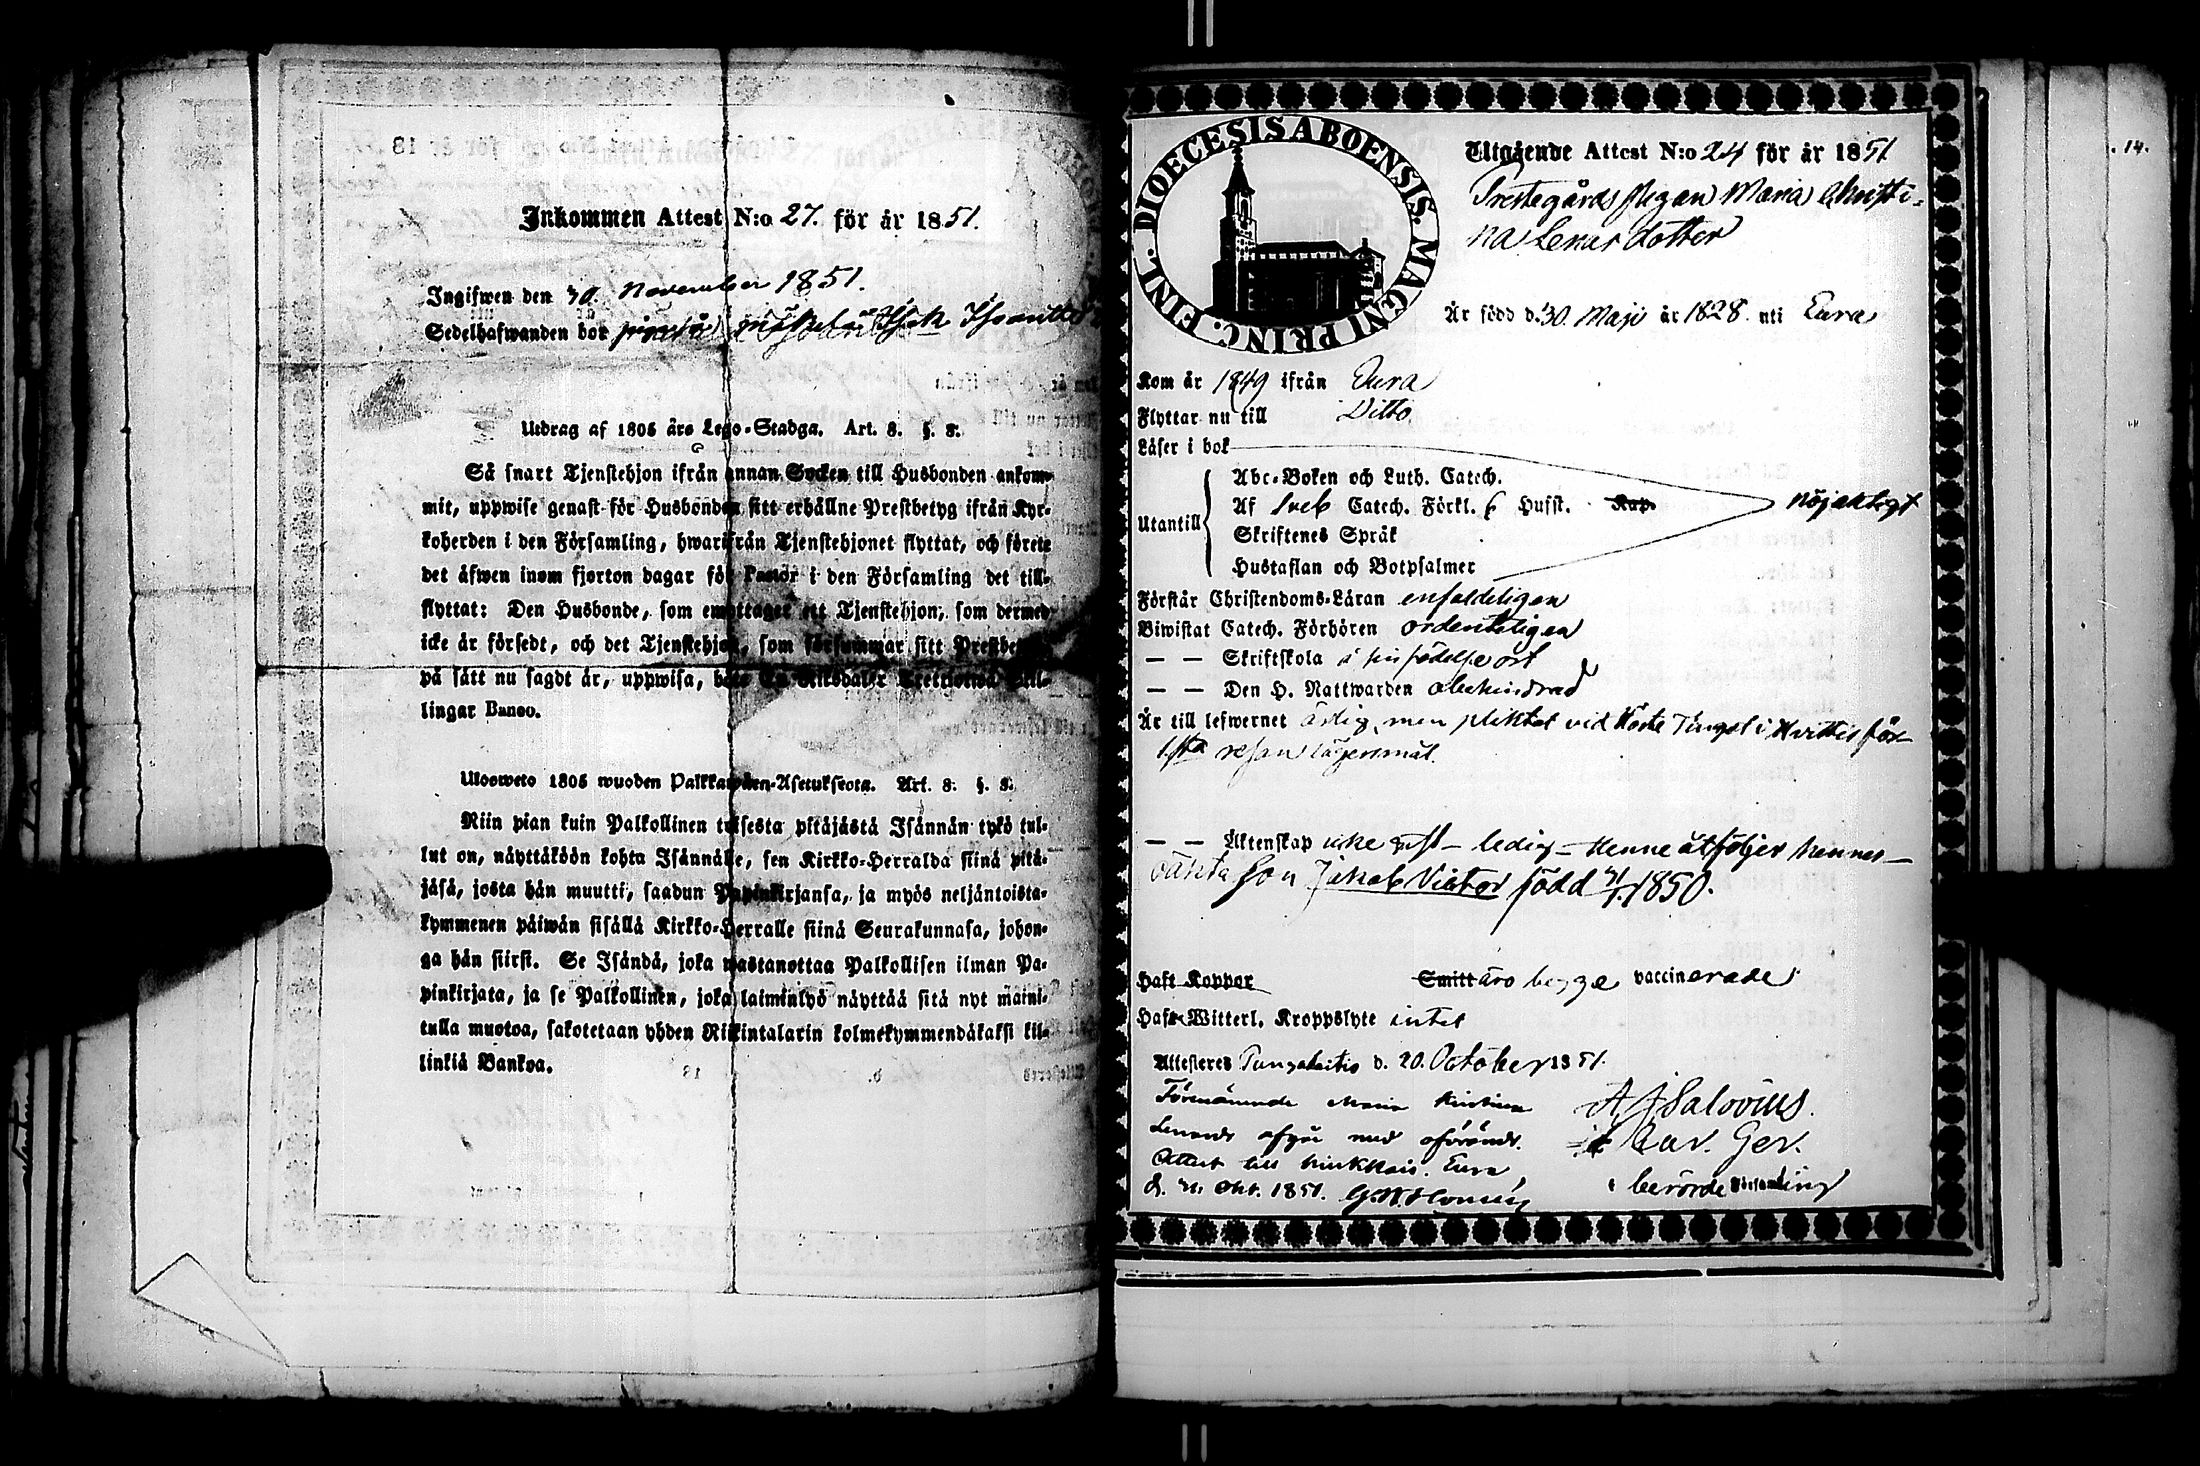 Inkommen Attest N:o 27. för år 1851.
Ingifwen den 30. November 1851.
Sedelhafwanden bor
Utdrag af 1805 års Lego-Stadga. Art. 8. §. 8.
Så snart Tjenstehjon ifrån annan Socken till Husbonden ankom-
mit, uppwise genast för Husbonden sitt erhållne Prestbetyg ifrån Kyr-
koherden i den Församling, hwarifrån Tjenstehjonet flyttat, och förete
det äfwen inom fjorton dagar för Pastor i den Församling det till-
flyttat: Den Husbonde, som emottager ett Tjenstehjon, som dermed
icke är försedt, och det Tjenstehjon, som försummar sitt Prestbetyg
på sätt nu sagdt är, uppwisa, böte En Riksdaler Trettiotwå Skil-
lingar Banco.
Ulosweto 1805 wuoden Palkkawäen-Asetuksesta. Art. 8. §. 8.
Niin pian kuin Palkollinen toisesta pitäjästä Isännän tykö tul-
lut on, näyttäköön kohta Isännälle, sen Kirkko-Herralda siinä pitä-
jäsä, josta hän muutti, saadun Papinkirjansa, ja myös neljäntoista-
kymmenen päiwän sisällä Kirkko-Herralle siinä Seurakunnasa, johon-
ga hän siirsi. Se Isändä, joka wastanottaa Palkollisen ilman Pa-
pinkirjata, ja se Palkollinen, joka laiminlyö näyttää sitä nyt maini-
tulla muotoa, sakotetaan yhden Riikintalarin kolmekymmendäkaksi kil-
linkiä Bankoa.
DIOECESIS ABOENSIS. MAGNI PRINC. FINL.
Utgående Attest N:o 24 för år 1851
Prestegårds pigan Maria Christi-
na Lenas dotter
Är född d. 30. Maji år 1828. uti Eura
Kom år 1849 ifrån Eura
Flyttar nu till Ditto
Läser i bok
Abc-Boken och Luth. Catech.
Utantill Af Sveb Catech. Förkl. Husst. Kap. nöjaktigt
Skriftenes Språk
Hustaflan och Botpsalmer
Förstår Christendoms-Läran enfaldeligen
Biwistat Catech. Förhören ordenteligen
— — Skriftskola i sin födelse ort
— — Den H. Nattwarden obehindrad
Är till lefwernet ärlig, men pliktat vid Höste Tinget i Hvittis för
1sta resan lägersmål.
— — Äktenskap icke — ledig — Henne åtföljer hennes
oäkta son Jakob Victor född 1850.
Haft Koppor Smitt äro begge vaccinerade
Haft Witterl. Kroppslyte intet
Attesteres Pungalaitio d. 20. October 1851.
Förenämnde Maria Kristina A J Salovius.
afgår med oförändr.
Attest till Kiukkais. Eura
d. 21. Okt. 1851.
i berörde Församling
14.